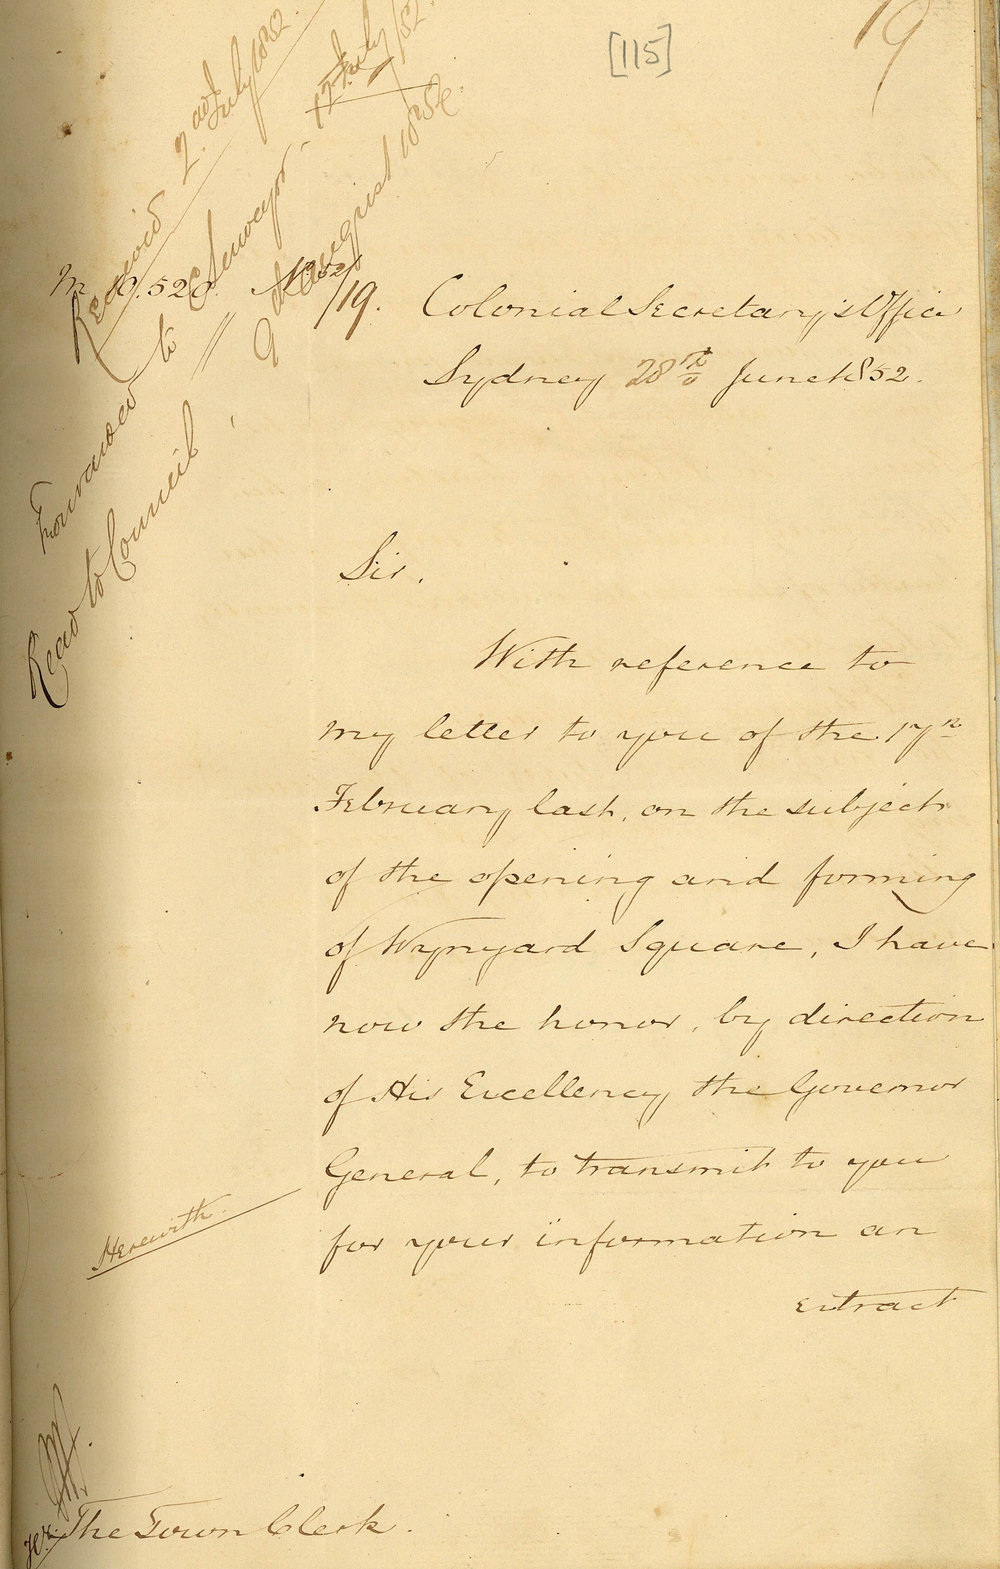 [115]
19
Received 2nd July 1852.
Forwarded to C Surveyor 12th July /52
Read to Council " 9 August 1852.
No. 52/19.
Colonial Secretary's Office
Sydney 28th June 1852.
Sir,
With reference to
my letter to you of the 17th
February last, on the subject
of the opening and forming
of Wynyard Square, I have
now the honor, by direction
of His Excellency the Governor
General, to transmit to you
for your information an
Herewith.
extract
The Town Clerk.